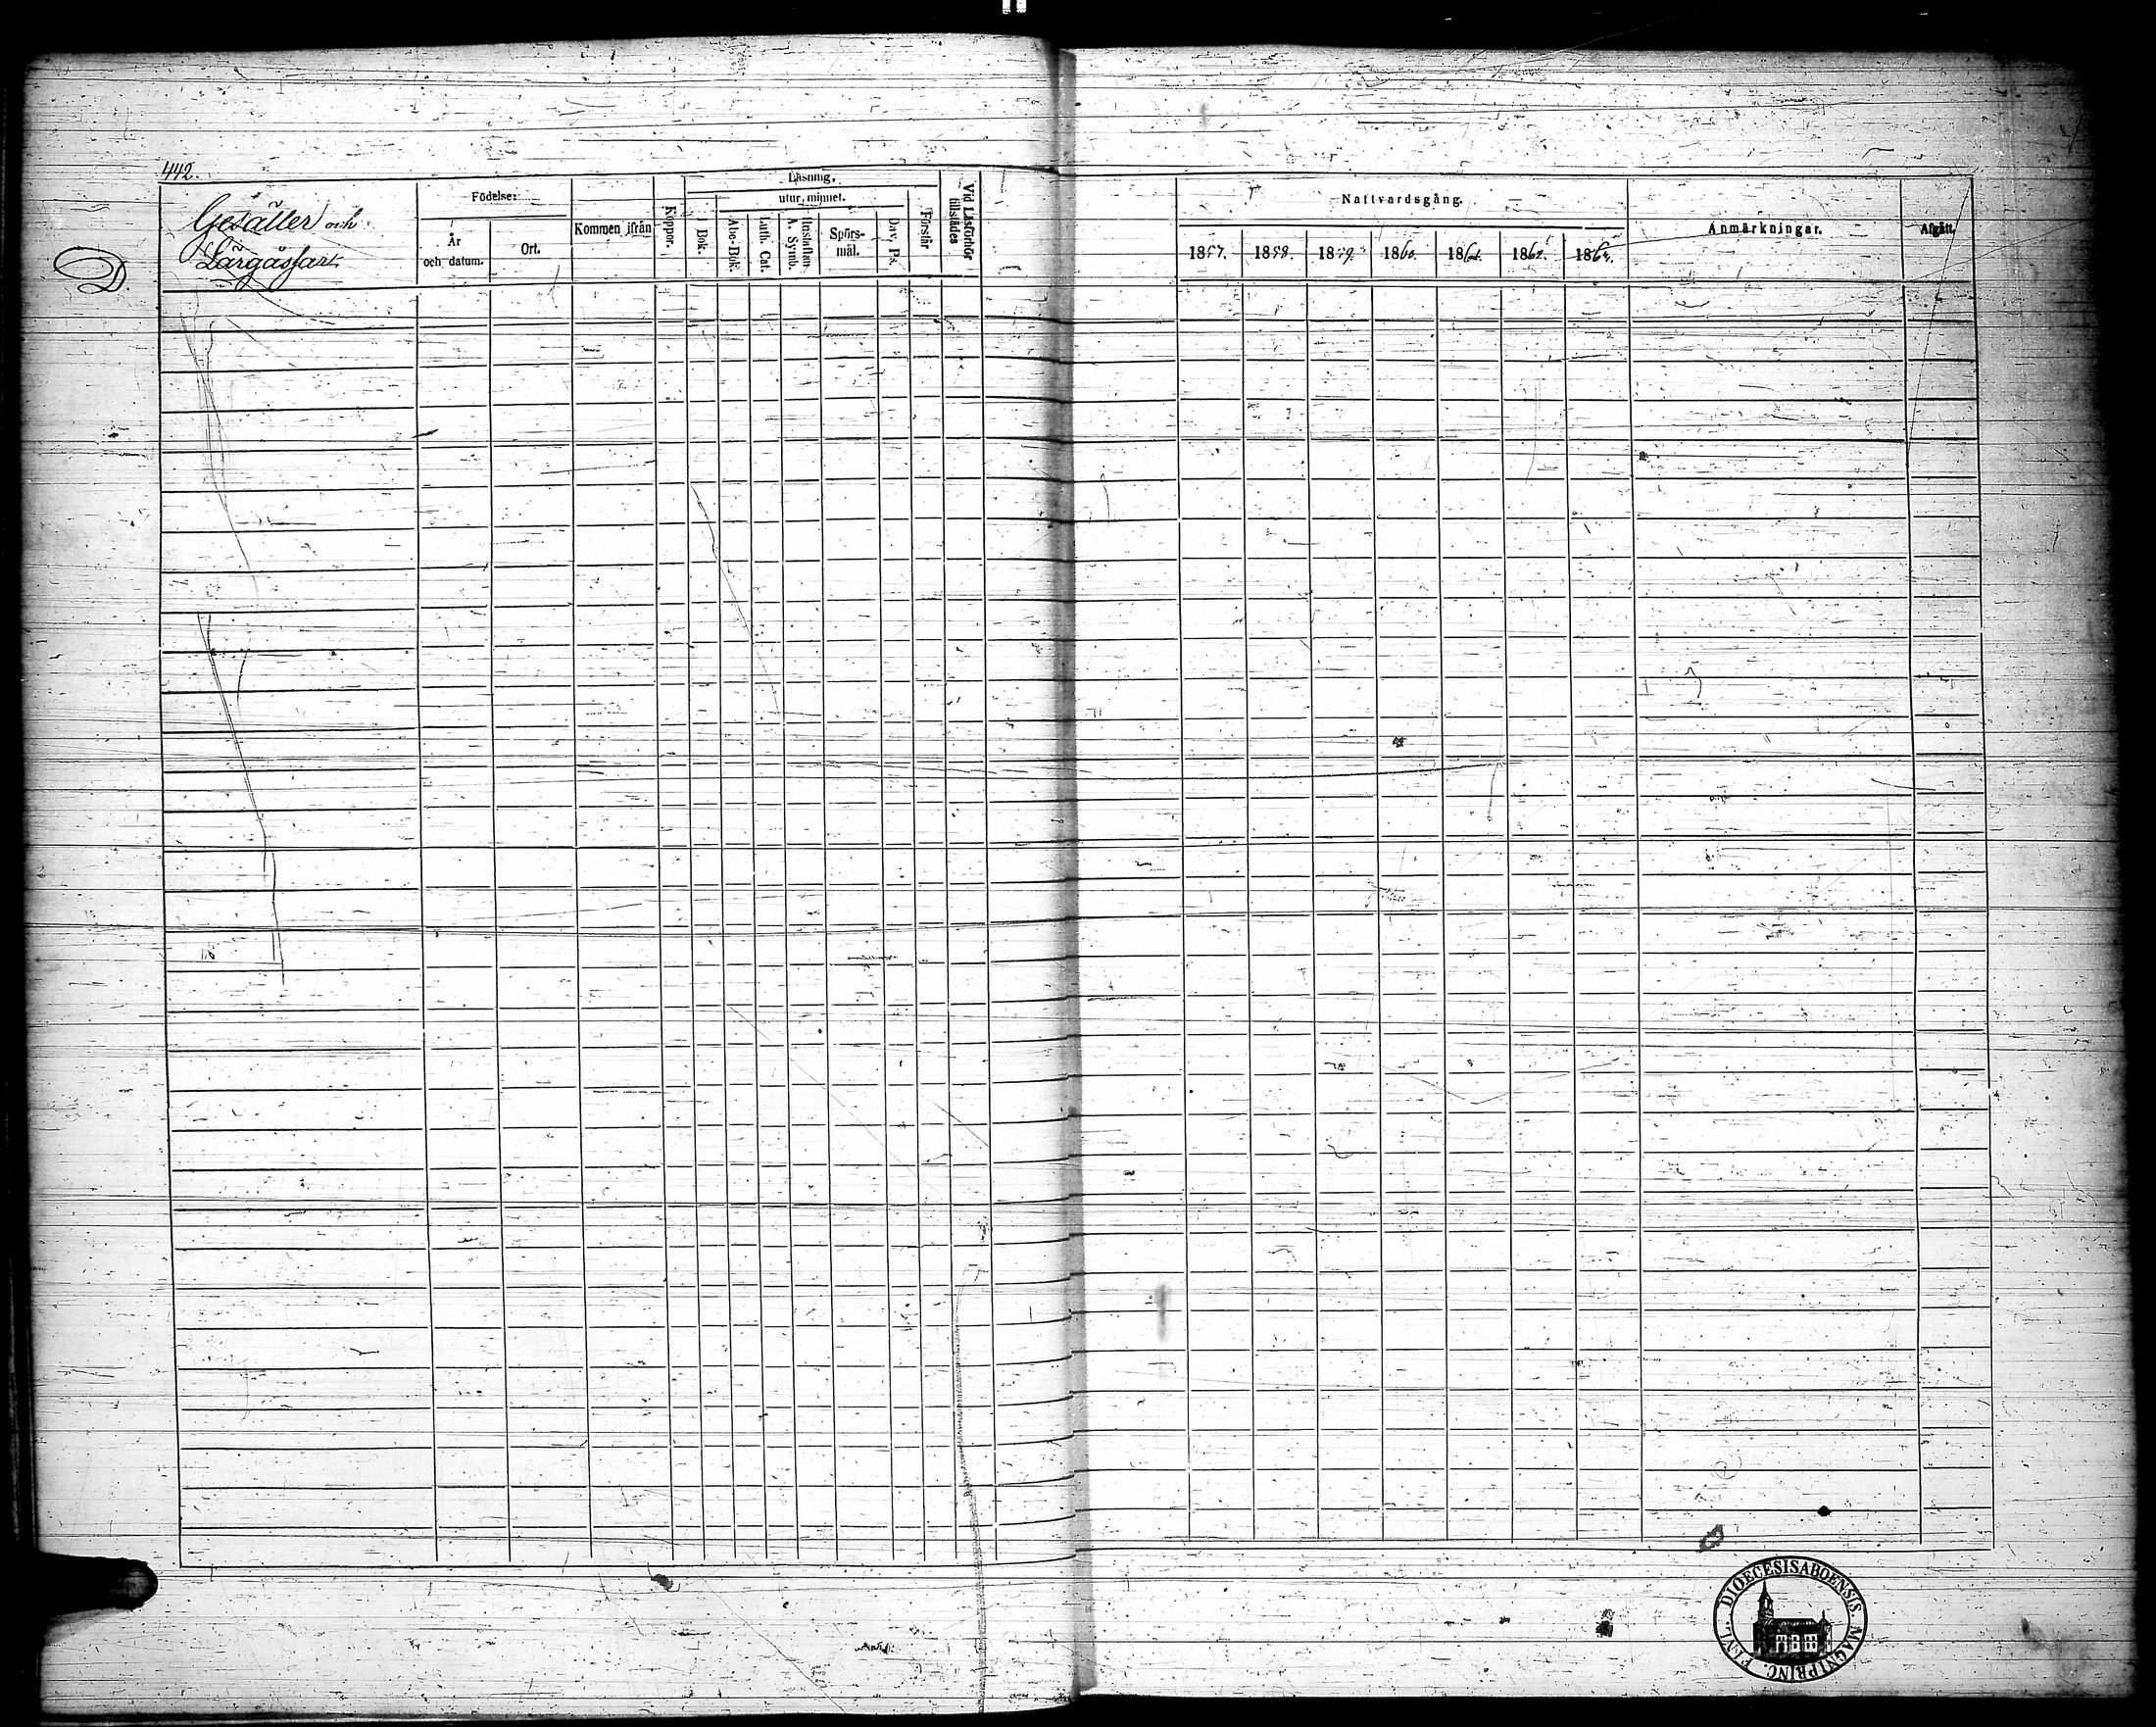 442.
Gesäller och
Lärgåssar.
D.
Födelse:
År
och datum.
Ort.
Kommen ifrån
Koppor.
Läsning,
utur minnet.
I Bok.
Abc-Bok.
Luth. Cat.
Hustaflan
A. Symb.
Spörs-
mål.
Dav. Ps.
Förstår
Vid Läsförhör
tillstädes
Nattvardsgång.
1857.
1858.
1859.
1860.
1861.
1862.
Anmärkningar.
Afgått.
DIOECESIS ABOENSIS. MAGNI PRINC. FINL.